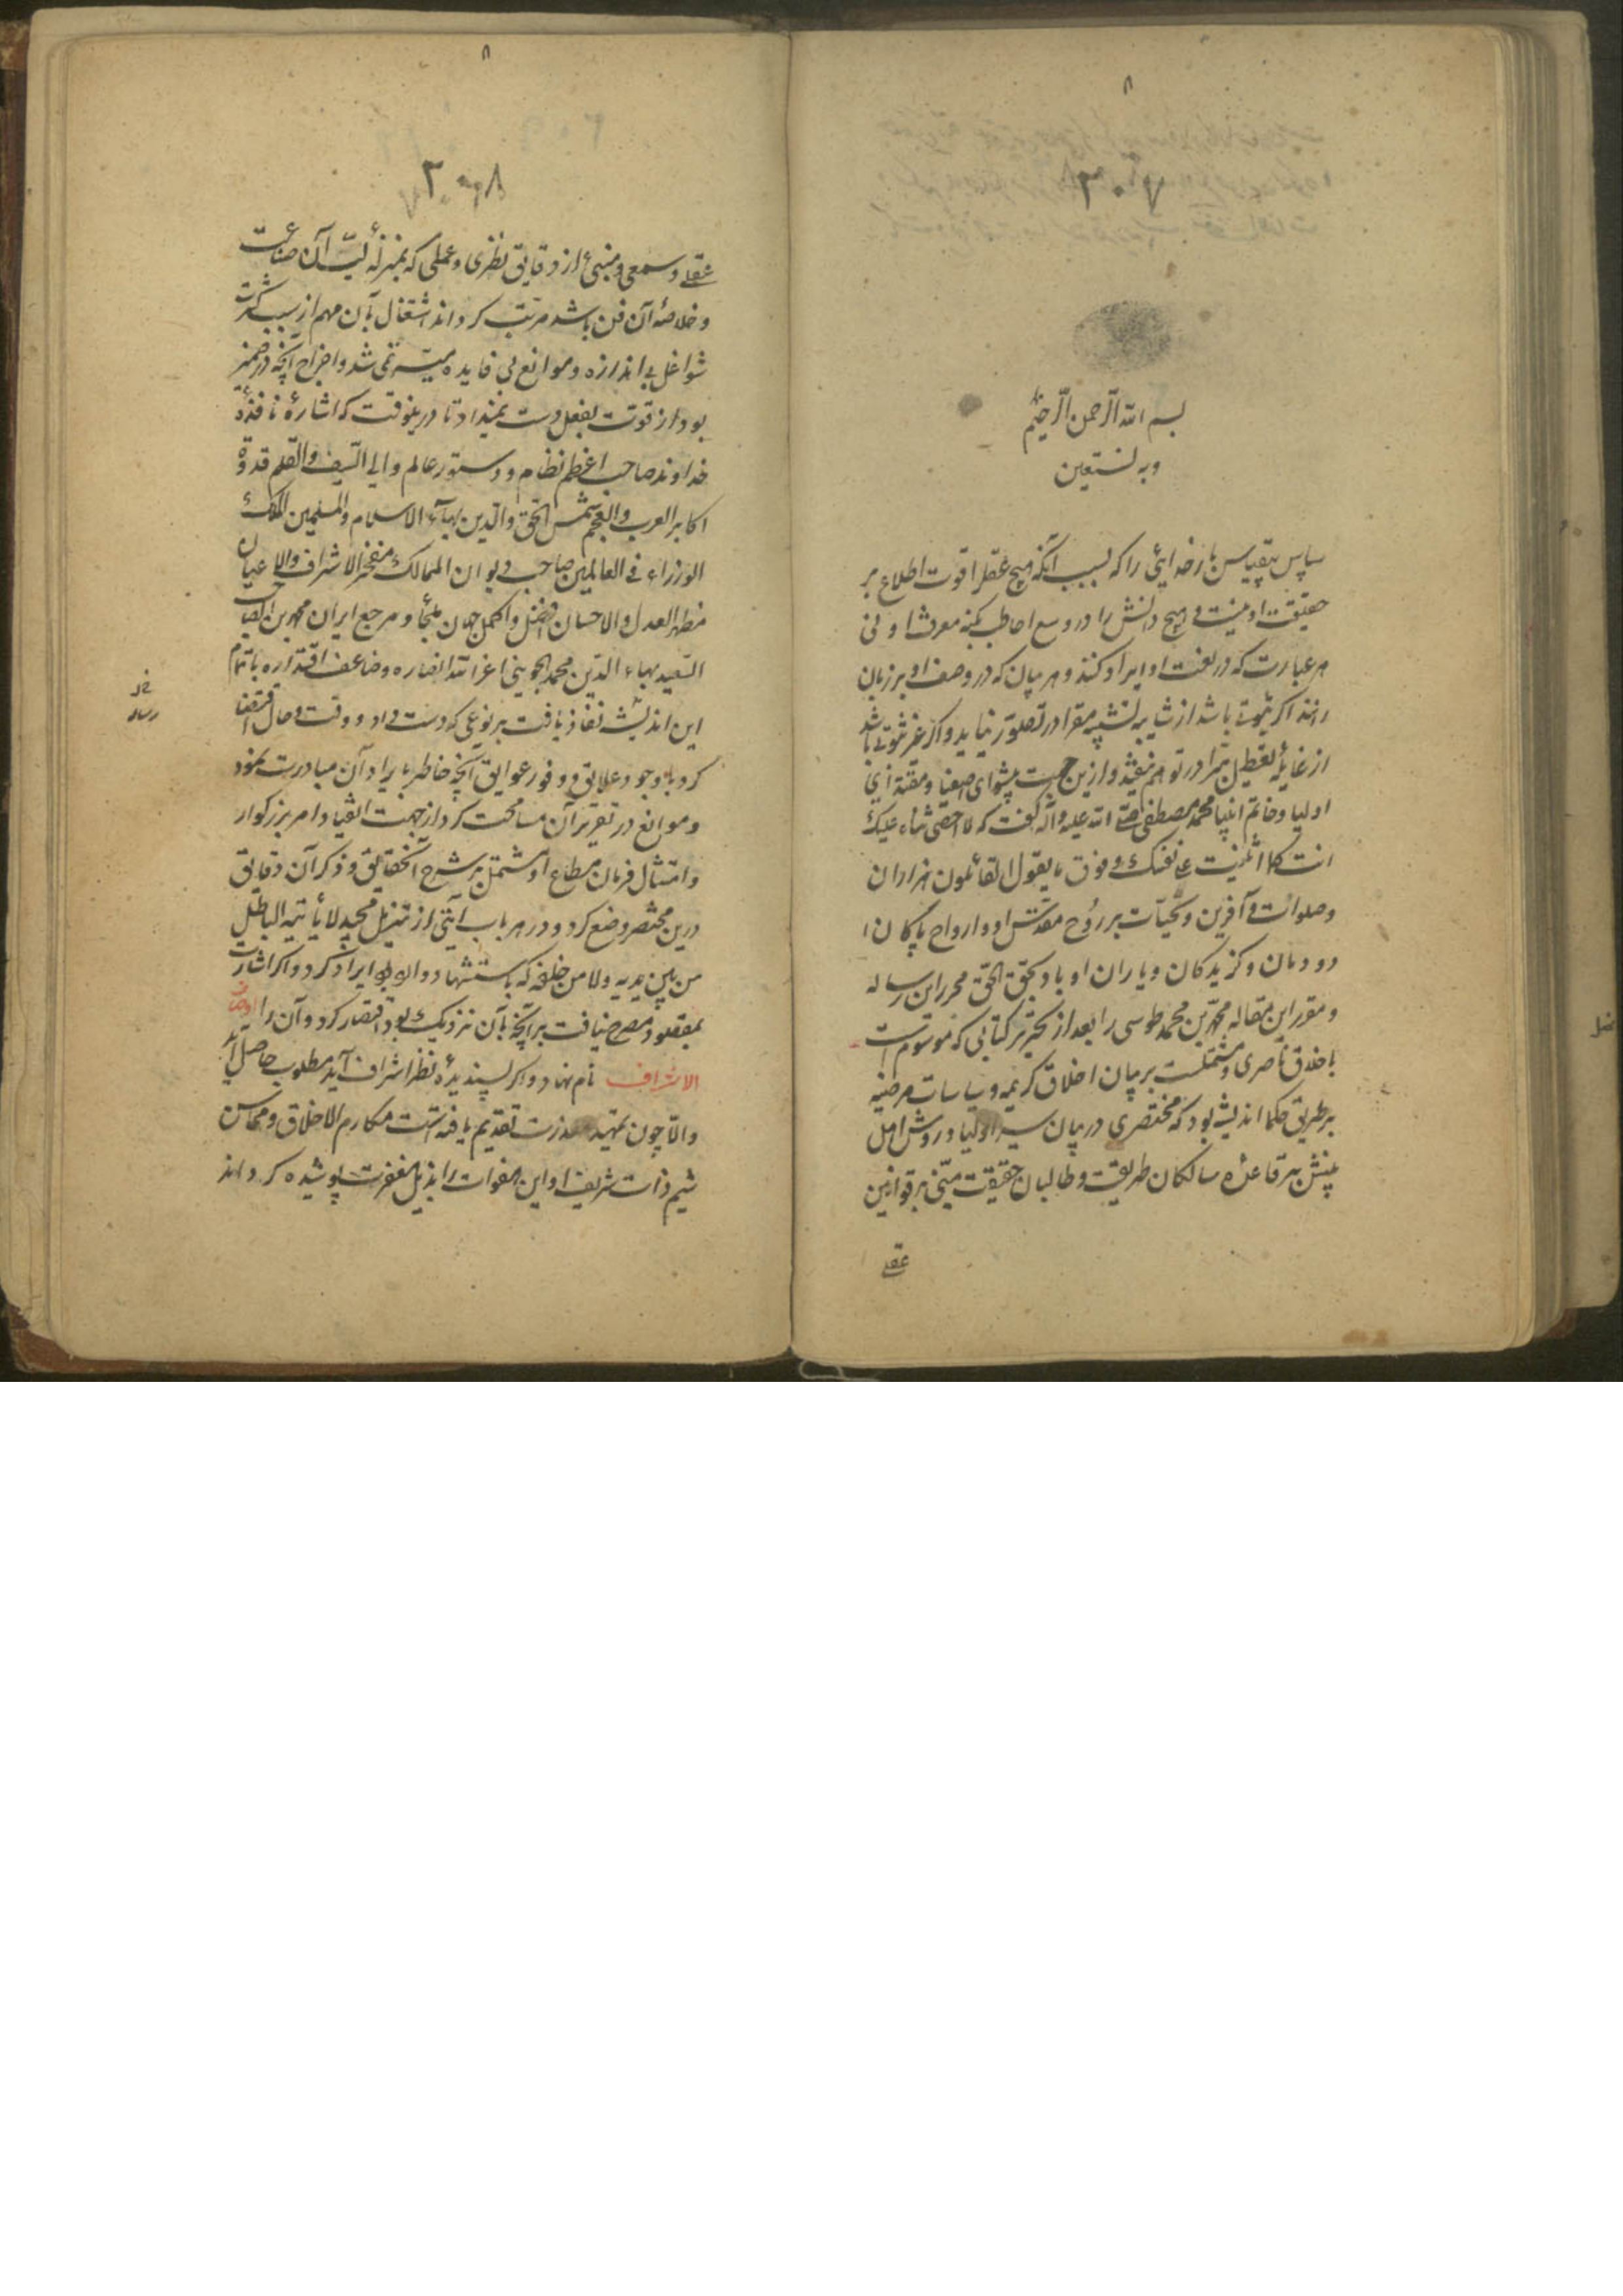 ۸
۳۰۷
بسم الله الرحمن الرحیم
وبه نستعین
سپاس بیقیاس بار خدایی را که بسبب آنکه هیچ عقل را قوت اطلاع بر
حقیقت او نیست و هیچ دانش را در وسع احاطت بکنه معرفت او نی
هر عبارت که در نعت او ایراد کنند و هر بیان که در وصف او بر زبان
رانند اگر ثبوتی باشد از شایبه تشبیه مبرا در تصور نیاید و اگر غیر ثبوتی باشد
از غایله تعطیل مبرا در توهم نیفتد و ازین جهت پیشوای اصفیا و مقتدای
اولیا و خاتم انبیا محمد مصطفی صلی الله علیه وآله گفت که لا احصی ثناء علیک
انت کما اثنیت علی نفسک و فوق ما یقول القائلون هزاران
وصلوات و آفرین و تحیات بر روح مقدس او و ارواح پاکان
دودمان و گزیدگان و یاران او باد بحق الحق محرر این رساله
و مقرر این مقاله محمد بن محمد طوسی را بعد از تحریر کتابی که موسوم است
باخلاق ناصری و مشتملست بر بیان اخلاق کریمه و سیاسات مرضیه
بر طریق حکما اندیشه بود که مختصری در بیان سیر اولیا و روش اهل
بینش بر قاعده سالکان طریقت و طالبان حقیقت مبنی بر قوانین
عقلی
۸
۳۰۸
عقلی و سمعی و منبی از دقایق نظری و عملی که بمنزله لب آن صناعت
و خلاصه آن فن باشد مرتب گرداند اشتغال بآن مهم از سبب کثرت
شواغل بی اندازه و موانع بی فایده میسر نمی شد و اخراج آنچه در ضمیر
بود از قوت بفعل دست نمیداد تا درینوقت که اشاره نافذه
خداوند صاحب اعظم نظام و دستور عالم والی السیف والقلم قدوة
اکابر العرب والعجم شمس الحق والدین بهاء الاسلام والمسلمین ملک
الوزراء فی العالمین صاحب دیوان الممالک مفخر الاشراف والاعیان
مظهر العدل والاحسان افضل و اکمل جهان ملجأ و مرجع ایران محمد بن الصاحب
السعید بهاء الدین محمد الجوینی اعز الله انصاره و ضاعف اقتداره باتمام
این اندیشه نفاذ یافت بر نوعی که دست داد و وقت و حال اقتضا
کرد با وجود علایق و وفور عوایق آنچه خاطر بایراد آن مبادرت نمود
و موانع در تقریر آن مسامحت کرد از جهت انقیاد امر بزرگوار
و امتثال فرمان مطاع او مشتمل بر شرح آن حقایق و ذکر آن دقایق
درین مختصر وضع کرد و در هر باب آیتی از تنزیل مجید لا یأتیه الباطل
من بین یدیه ولا من خلفه که باستشهاد وارد بود ایراد کرد و اگر اشارت
بمقصود مصرح نیافت بر آنچه بآن نزدیک بود اقتصار کرد و آن را اوصاف
الاشراف نام نهاد و اگر پسندیده نظر اشراف آید مطلوب حاصل آید
والا چون تمهید معذرت تقدیم یافته است مکارم الاخلاق و محاسن
شیم ذات شریف او این هفوات را بذیل مغفرت پوشیده گرداند